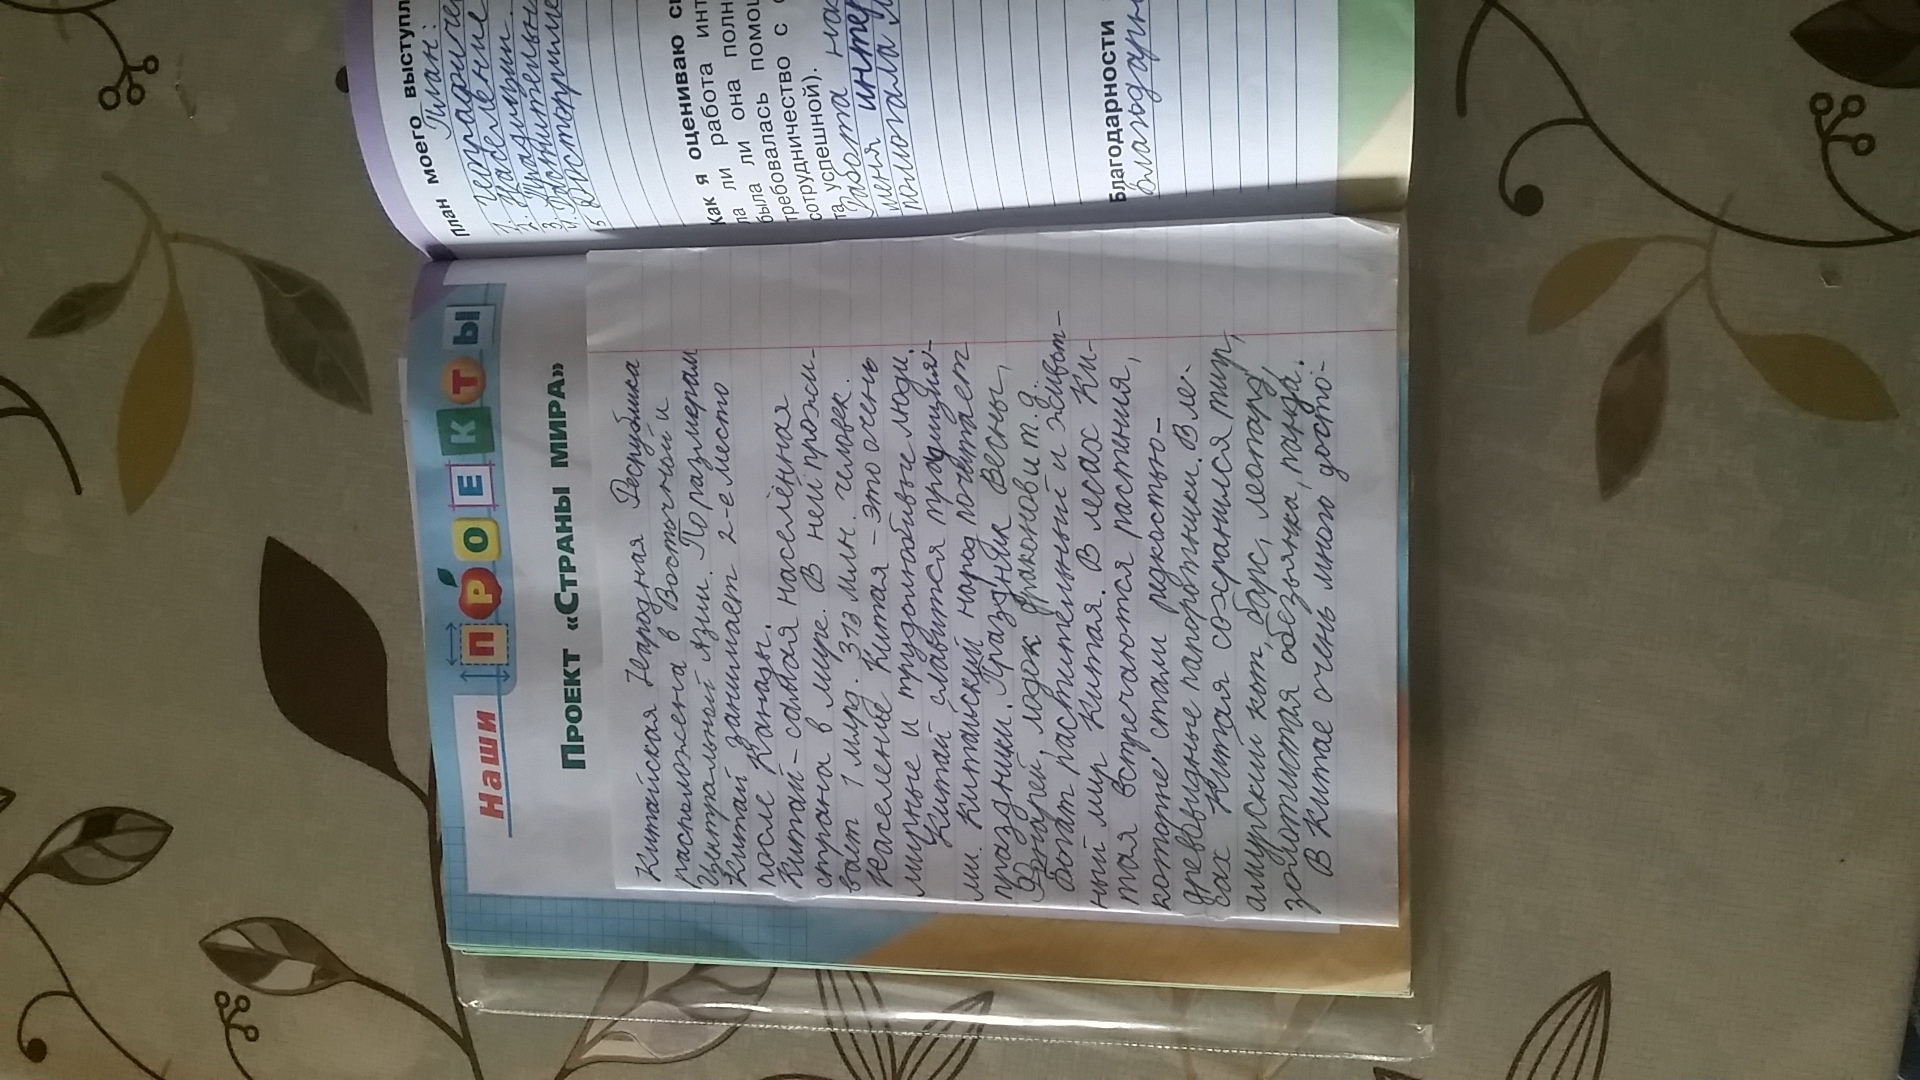 Наши ПРОЕКТЫ
ПРОЕКТ «СТРАНЫ МИРА»
Китайская Народная Республика
расположена в Восточной и
Центральной Азии. По размерам
Китай занимает 2-е место
после Канады.
Китай - самая населённая
страна в мире. В ней прожи-
вают 1 млрд. 313 млн. человек.
Население Китая - это очень
мирные и трудолюбивые люди.
Китай славится традиция-
ми. Китайский народ почитает
праздники. Праздник Весны,
Фонарей, лодок драконов и т.д.
Богат растительный и живот-
ный мир Китая. В лесах Ки-
тая встречаются растения,
которые стали редкостью -
древовидные папоротники. В ле-
сах Китая сохранился тигр,
амурский кот, барс, леопард,
золотистая обезьянка, панда.
В Китае очень много досто-
План моего выступл
План:
1. географиче
2. население
3. Традиции
4. Растительны
5 Достопримеч
Как я оцениваю с
ка ли работа инт
ла ли она полн
была помощ
требовалась
сотрудничество с
та успешной).
Работа
меня интер
помогала
Благодарности
благодарн